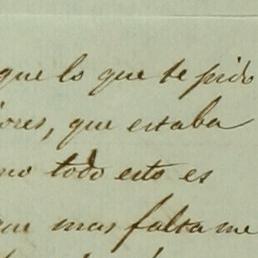 que lo que te pido
ores, que estaba
no todo esto es
que mas falta me